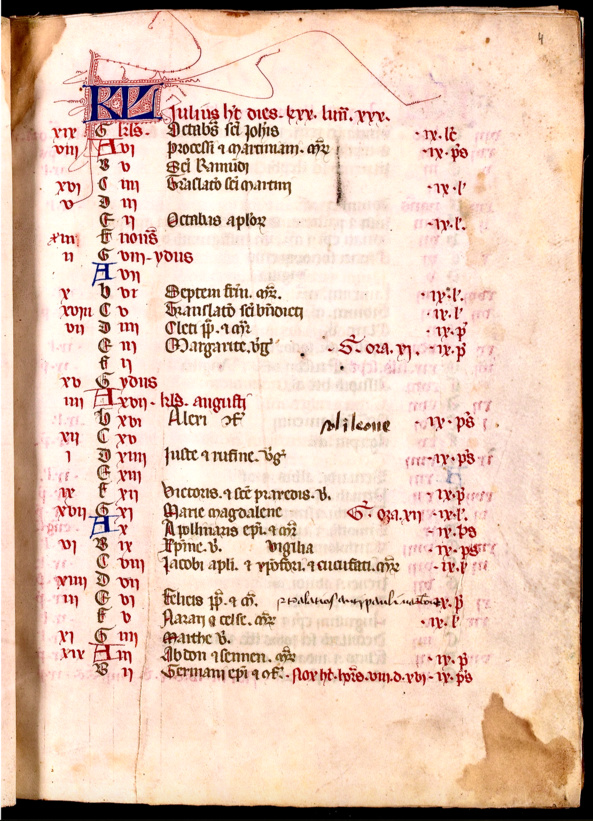 4
KL Julius ht dies. xxx. lun. xxx.
xix G kls. Octabas sci Johis .ix. lc
viii A vi Processi ⁊ martiniani. mr .ix. ps
B v Sci Ramudi
xvi C iiii Traslato sci martini .ix. l'
v D iii
E ii Octabas aplor .ix. l'.
xiii F nonis
ii G viii ydus
A vii
x b vi Septem frm. mr. .ix. l'.
xviii C v Translato sci bndicti .ix. l'.
vii D iiii Cleti pp. ⁊ mr .ix. p
E iii Margarite. vg .S. ora. xi. .ix. p
F ii
xv G ydus
iiii A xvii. kls. augusti
b xvi Alexi ɔf .ix. ps
xii C xv
i D xiiii Juste ⁊ rufine. vg .ix. ps
E xiii
ix F xii Victoris. ⁊ sce praxedis. v. .ix. p
xvii G xi Marie magdalene S. ora. xii .ix. l'.
A x Apollinaris epi. ⁊ mr .ix. ps
vi B ix Xpine. v. Vigilia .ix. ps
C viii Jacobi apli. ⁊ xpofori. ⁊ cucufati. mr .ix. l'
xiiii D vii
iii E vi Felicis pp. ⁊ m. .ix. p
F v Nazarii ⁊ celsi. mr .ix. l'
xi G iiii Marthe v.
xix A iii Abdon ⁊ sennen. mr .ix. p
B ii Germani epi ⁊ ɔf. Nox ht. hors. viii. d. xvi .ix. ps